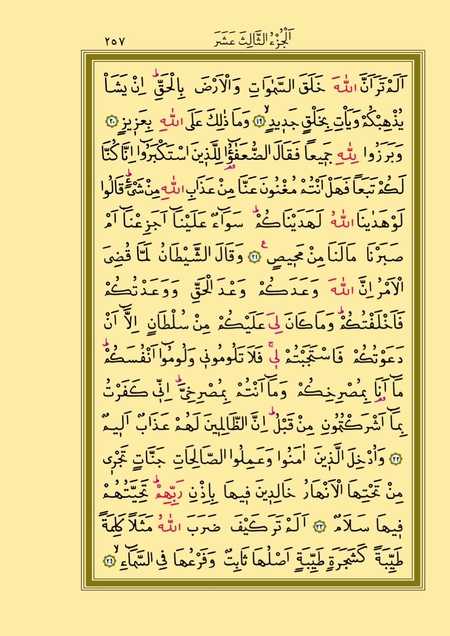 اَلْجُزْءُ الثَّالِثَ عَشَرَ ٢٥٧
اَلَمْ تَرَ اَنَّ اللّٰهَ خَلَقَ السَّمٰوَاتِ وَالْاَرْضَ بِالْحَقِّۜ اِنْ يَشَأْ
يُذْهِبْكُمْ وَيَأْتِ بِخَلْقٍ جَد۪يدٍۙ ١٩ وَمَا ذٰلِكَ عَلَى اللّٰهِ بِعَز۪يزٍ ٢٠
وَبَرَزُوا لِلّٰهِ جَم۪يعًا فَقَالَ الضُّعَفٰٓؤُا لِلَّذ۪ينَ اسْتَكْبَرُٓوا اِنَّا كُنَّا
لَكُمْ تَبَعًا فَهَلْ اَنْتُمْ مُغْنُونَ عَنَّا مِنْ عَذَابِ اللّٰهِ مِنْ شَيْءٍۜ قَالُوا
لَوْ هَدٰينَا اللّٰهُ لَهَدَيْنَاكُمْۜ سَوَٓاءٌ عَلَيْنَٓا اَجَزِعْنَٓا اَمْ
صَبَرْنَا مَا لَنَا مِنْ مَح۪يصٍ۟ ٢١ وَقَالَ الشَّيْطَانُ لَمَّا قُضِيَ
الْاَمْرُ اِنَّ اللّٰهَ وَعَدَكُمْ وَعْدَ الْحَقِّ وَوَعَدْتُكُمْ
فَاَخْلَفْتُكُمْۜ وَمَا كَانَ لِيَ عَلَيْكُمْ مِنْ سُلْطَانٍ اِلَّٓا اَنْ
دَعَوْتُكُمْ فَاسْتَجَبْتُمْ ل۪يۚ فَلَا تَلُومُون۪ي وَلُومُٓوا اَنْفُسَكُمْۜ
مَٓا اَنَا۬ بِمُصْرِخِكُمْ وَمَٓا اَنْتُمْ بِمُصْرِخِيَّۜ اِنّ۪ي كَفَرْتُ
بِمَٓا اَشْرَكْتُمُونِ مِنْ قَبْلُۜ اِنَّ الظَّالِم۪ينَ لَهُمْ عَذَابٌ اَل۪يمٌ
٢٢ وَاُدْخِلَ الَّذ۪ينَ اٰمَنُوا وَعَمِلُوا الصَّالِحَاتِ جَنَّاتٍ تَجْر۪ي
مِنْ تَحْتِهَا الْاَنْهَارُ خَالِد۪ينَ ف۪يهَا بِاِذْنِ رَبِّهِمْۜ تَحِيَّتُهُمْ
ف۪يهَا سَلَامٌ ٢٣ اَلَمْ تَرَ كَيْفَ ضَرَبَ اللّٰهُ مَثَلًا كَلِمَةً
طَيِّبَةً كَشَجَرَةٍ طَيِّبَةٍ اَصْلُهَا ثَابِتٌ وَفَرْعُهَا فِي السَّمَٓاءِۙ ٢٤